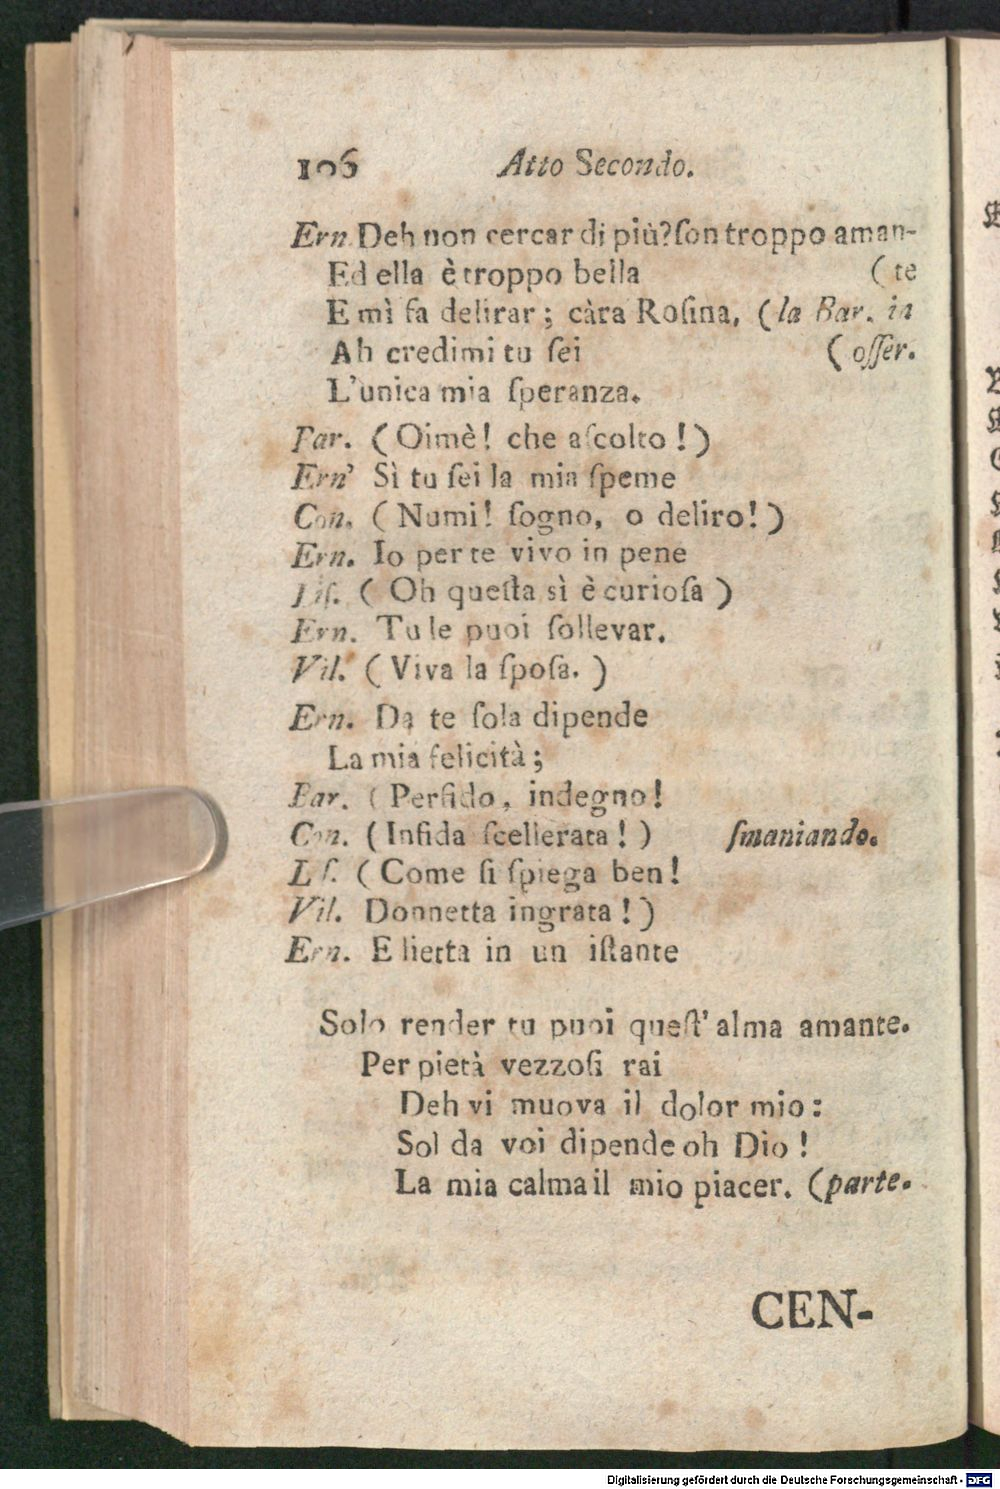 106 Atto Secondo.
Ern Deh non cercar di più? ſon troppo aman-
Ed ella è troppo bella (te
E mì fa delirar; càra Roſina, (la Bar. in
Ah credimi tu ſei (oſſer.
L'unica mia ſperanza.
Bar. (Oimè! che aſcolto!)
Ern' Sì tu ſei la mia ſpeme
Con. (Numi! ſogno, o deliro!)
Ern. Io per te vivo in pene
Liſ. (Oh queſta sì è curioſa)
Ern. Tu le puoi ſollevar.
Vil. (Viva la ſpoſa.)
Ern. Da te ſola dipende
La mia felicità;
Bar. (Perfido, indegno!
Con. (Infida ſcellerata!) ſmaniando.
Liſ. (Come ſi ſpiega ben!
Vil. Donnetta ingrata!)
Ern. E lietta in un iſtante
Solo render tu puoi queſt' alma amante.
Per pietà vezzoſi rai
Deh vi muova il dolor mio:
Sol da voi dipende oh Dio!
La mia calma il mio piacer. (parte.
CEN-
Digitalisierung gefördert durch die Deutsche Forschungsgemeinschaft - DFG